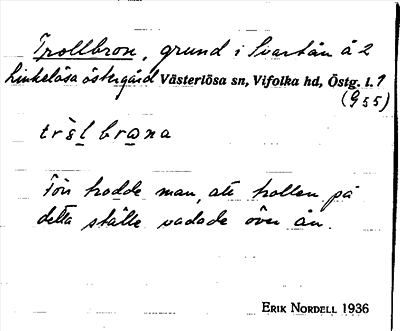 Trollbron, grund i Svartån å 2
Linkelösa östergård Västerlösa sn, Vifolka hd, Östg. l. 1
(9 s 5)
brona
Förr trodde man, att trollen på
detta ställe vadade över ån.
ERIK NORDELL 1936